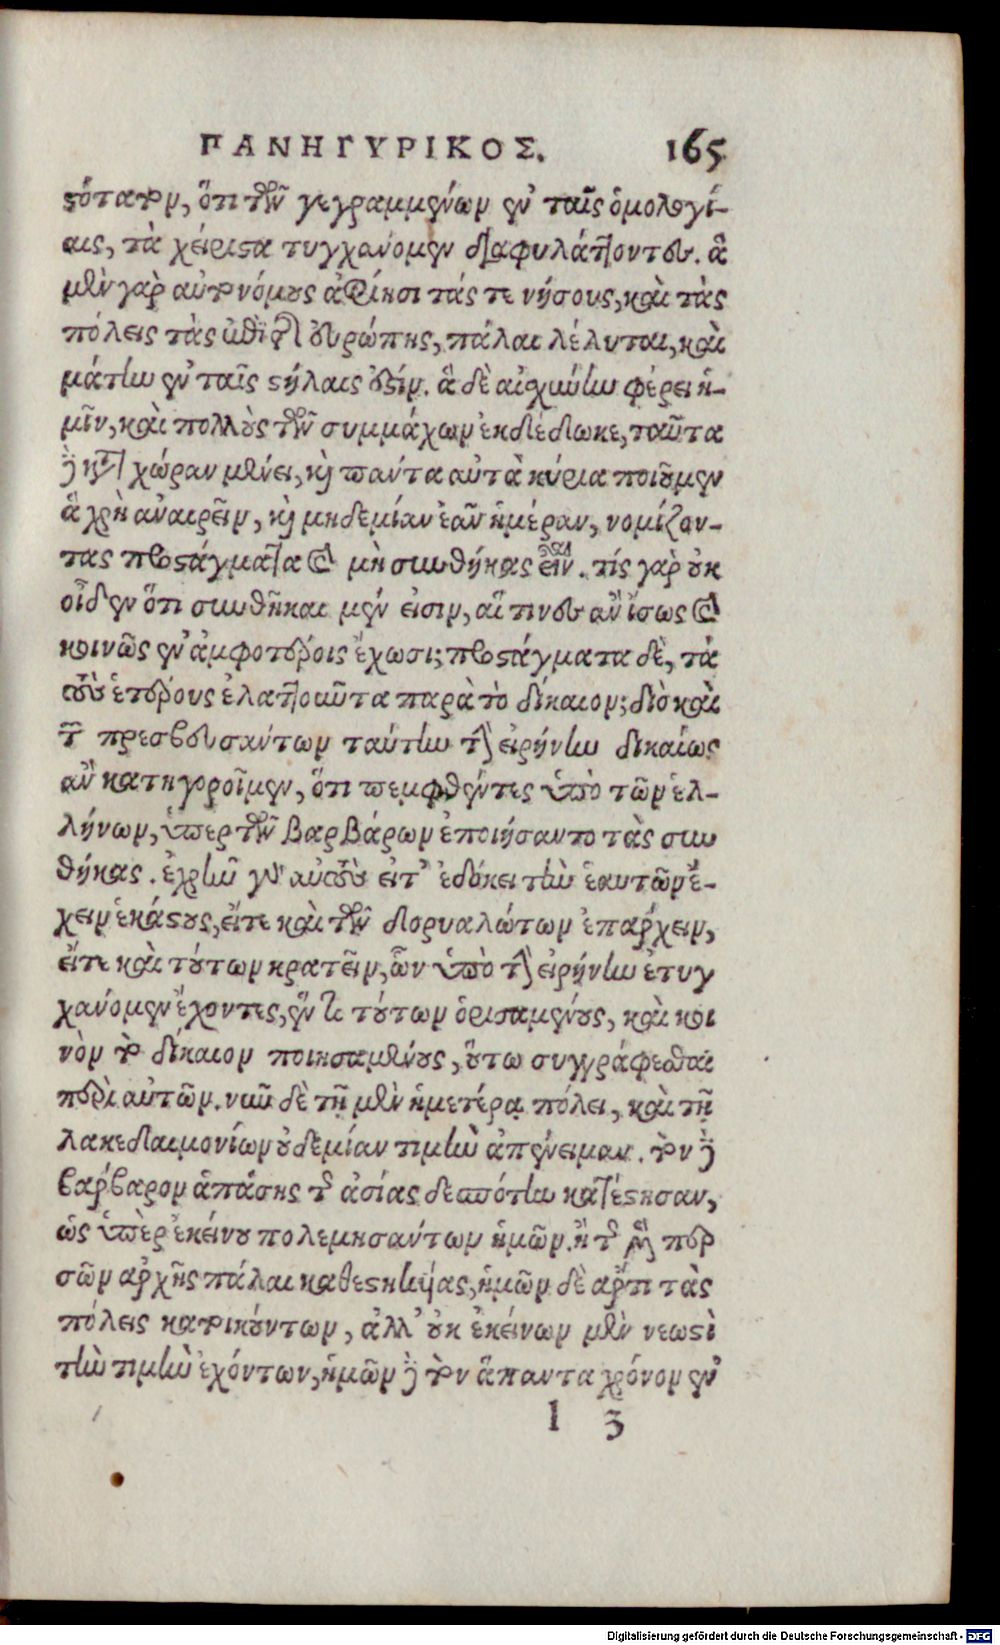 ΠΑΝΗΓΥΡΙΚΟΣ. 165
ϛότατον, ὅτι τῶν γεγραμμένων ἐν ταῖς ὁμολογί-
αις, τὰ χείριϛα τυγχάνομεν διαφυλάττοντες. ἃ
μὲν γὰρ αὐτονόμους ἀφίησι τάς τε νήσους, καὶ τὰς
πόλεις τὰς ἐπὶ τῆς εὐρώπης, πάλαι λέλυται, καὶ
μάτην ἐν ταῖς ϛήλαις ἐϛίν. ἃ δὲ αἰσχύνην φέρει ἡ-
μῖν, καὶ πολλοὺς τῶν συμμάχων ἐκδέδωκε, ταῦτα
δὲ κατὰ χώραν μένει, καὶ πάντα αὐτὰ κύρια ποιοῦμεν
ἃ χρὴ ἀναιρεῖν, καὶ μηδεμίαν ἐᾶν ἡμέραν, νομίζον-
τας προϛάγματα καὶ μὴ συνθήκας εἶναι. τίς γὰρ οὐκ
οἶδεν ὅτι συνθῆκαι μέν εἰσιν, αἵ τινες ἂν ἴσως καὶ
κοινῶς ἐν ἀμφοτέροις ἔχωσι; προϛάγματα δὲ, τὰ
τοὺς ἑτέρους ἐλαττοῦντα παρὰ τὸ δίκαιον; διὸ καὶ
τῶν πρεσβευσάντων ταύτην τὴν εἰρήνην δικαίως
ἂν κατηγοροῖμεν, ὅτι πεμφθέντες ὑπὸ τῶν ἑλ-
λήνων, ὑπὲρ τῶν βαρβάρων ἐποιήσαντο τὰς συν
θήκας. ἐχρῆν γὰρ αὐτοὺς εἴτ' ἐδόκει τὴν ἑαυτῶν ἔ-
χειν ἑκάϛους, εἴτε καὶ τῶν δορυαλώτων ἐπάρχειν,
εἴτε καὶ τούτων κρατεῖν, ὧν ὑπὸ τὴν εἰρήνην ἐτυγ
χάνομεν ἔχοντες, ἕν τι τούτων ὁρισαμένους, καὶ κοι
νὸν τὸ δίκαιον ποιησαμένους, οὕτω συγγράφεσθαι
περὶ αὐτῶν. νῦν δὲ τῇ μὲν ἡμετέρᾳ πόλει, καὶ τῇ
λακεδαιμονίων οὐδεμίαν τιμὴν ἀπένειμαν. τὸν δὲ
βάρβαρον ἁπάσης τῆς ἀσίας δεσπότην κατέϛησαν,
ὡς ὑπὲρ ἐκείνου πολεμησάντων ἡμῶν. ἢ τῆς μὲν περ
σῶν ἀρχῆς πάλαι καθεϛηκυίας, ἡμῶν δὲ ἄρτι τὰς
πόλεις κατοικούντων, ἀλλ' οὐκ ἐκείνων μὲν νεωϛὶ
τὴν τιμὴν ἐχόντων, ἡμῶν δὲ τὸν ἅπαντα χρόνον ἐν
l 3
Digitalisierung gefördert durch die Deutsche Forschungsgemeinschaft - DFG